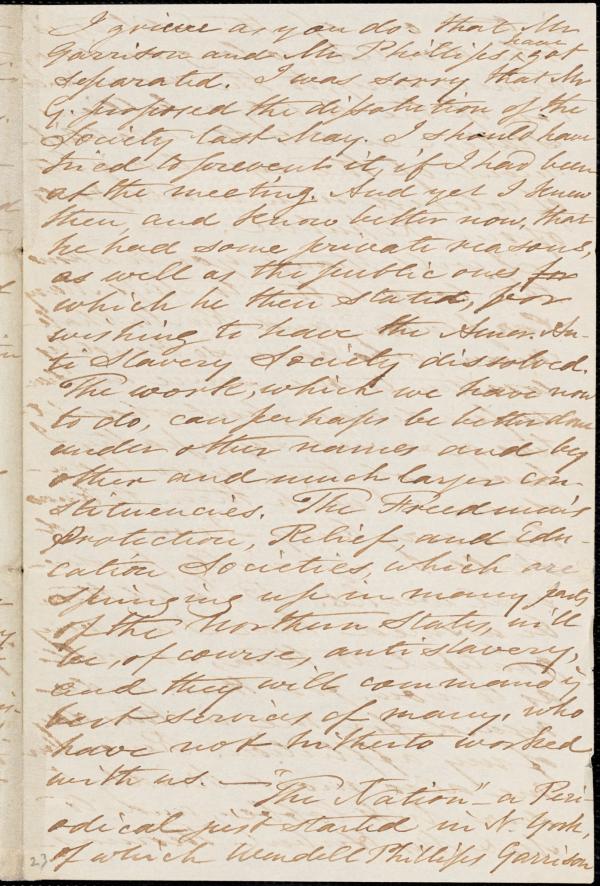 I grieve as you do that Mr
Garrison and Mr Phillips have got
separated. I was sorry that Mr
G. proposed the dissolution of the
Society last May. I should have
tried to prevent it, if I had been
at the meeting. And yet I knew
then, and know better now, that
he had some private reasons,
as well as the public ones for
which he then stated, for
wishing to have the Amer. An-
ti Slavery Society dissolved.
The work, which we have now
to do, can perhaps be better done
under other names and by
other and much larger con-
stituencies. The Freedmen's
Protection, Relief, and Edu-
cation Societies, which are
springing up in many parts
of the Northern States, will
be, of course, antislavery,
and they will command
best services of many, who
have not hitherto worked
with us. —
"The Nation" - a Peri-
odical just started in N. York,
of which Wendell Phillips Garrison
23